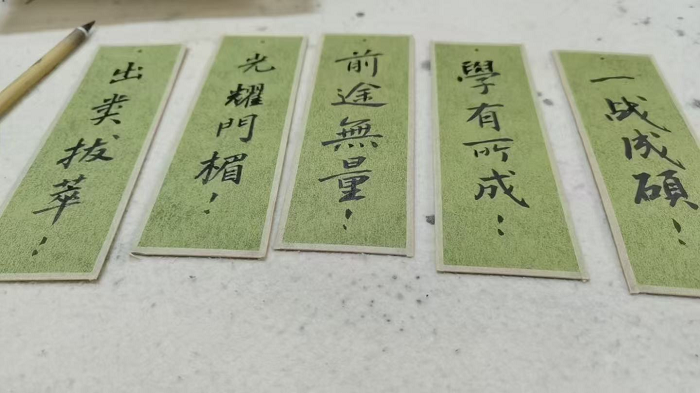 出类拔萃!
光耀門楣!
前途無量!
學有所成!
一战成硕!